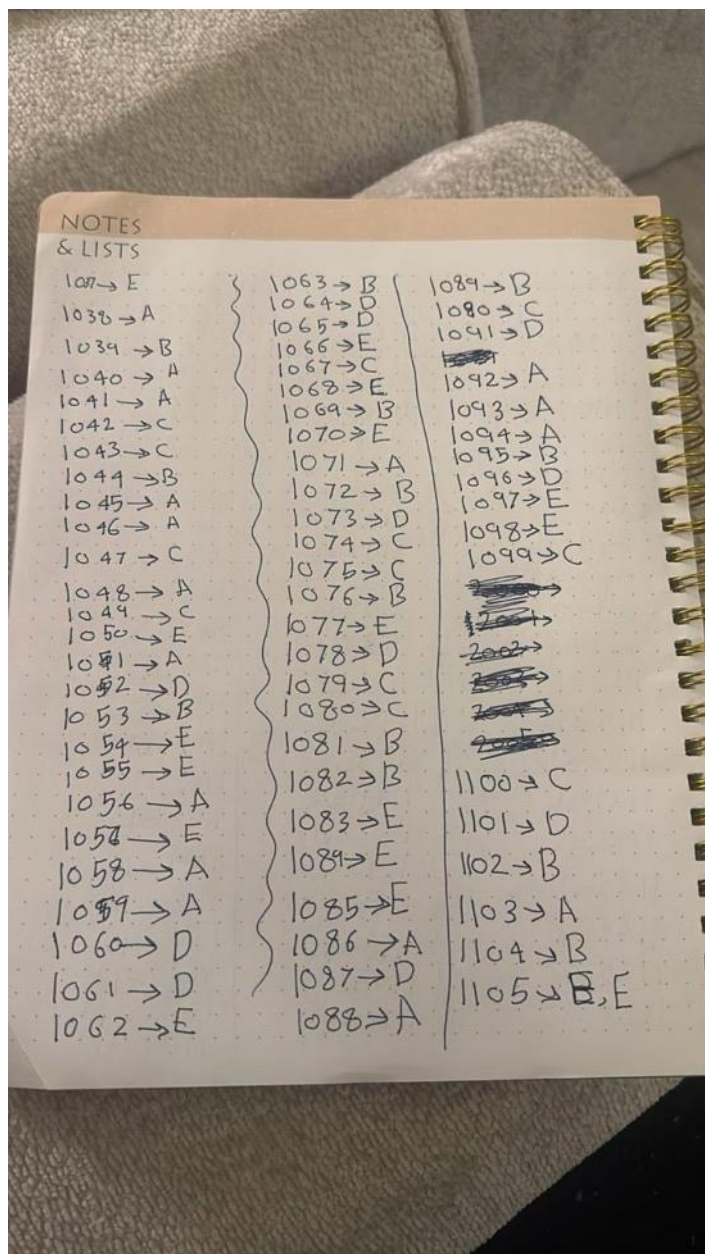 NOTES
& LISTS
1037→ E
1038 → A
1039 → B
1040 → A
1041 → A
1042 → C
1043 → C
1044 → B
1045 → A
1046 → A
1047 → C
1048 → A
1049 → C
1050 → E
1051 → A
1052 → D
1053 → B
1054 → E
1055 → E
1056 → A
1058 → A
1059 → A
1060 → D
1061 → D
1062 → E
1063 → B
1064 → D
1065 → D
1066 → E
1067 → C
1068 → E
1069 → B
1070 → E
1071 → A
1072 → B
1073 → D
1074 → C
1075 → C
1076 → B
1077 → E
1078 → D
1079 → C
1080 → C
1081 → B
1082 → B
1083 → E
1084 → E
1085 → E
1086 → A
1087 → D
1088 → A
1089 → B
1090 → C
1091 → D
1092 → A
1093 → A
1094 → A
1095 → B
1096 → D
1097 → E
1098 → E
1099 → C
1100 → C
1101 → D
1102 → B
1103 → A
1104 → B
1105 → B, E